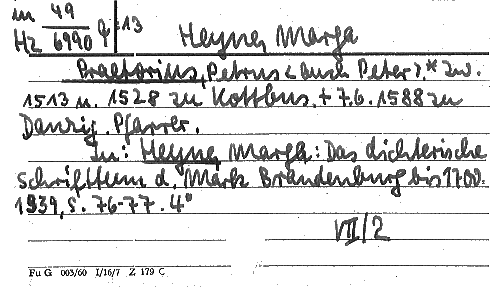 in 49
Hz 6990 4 :13
Heyne, Marga
Praetorius, Petrus <auch Peter>, * zw.
1513 u. 1528 zu Kottbus, + 7.6.1588 zu
Danzig. Pfarrer.
In: Heyne, Marga: Das dichterische
Schrifttum d. Mark Brandenburg bis 1700.
1939, S. 76-77. 4°
VII/2
Fu G 003/60 I/16/7 Z 179 C